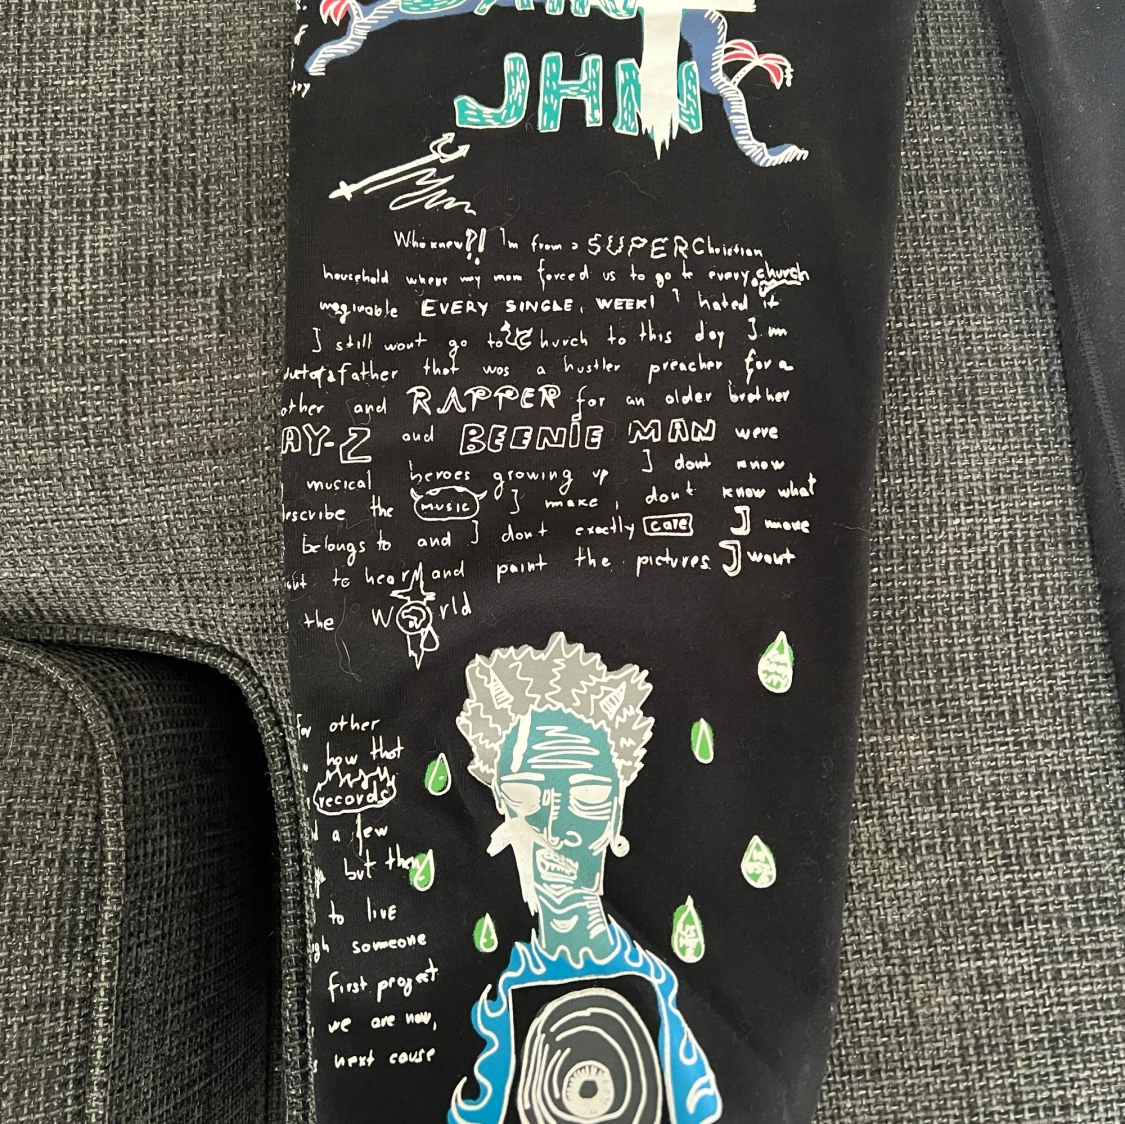 JHN
Who knew?! I'm from a SUPER Christian
household where my mom forced us to go to every church
imaginable EVERY SINGLE, WEEK! I hated it
I still wont go to Church to this day I'm
father that was a hustler preacher for a
other and RAPPER for an older brother
AY-Z and BEENiE MAN were
musical heroes growing up I dont know
escribe the MUSIC I make, dont know what
belongs to and I dont exactly care I make
to hear and paint the pictures I want
the WORld
For other
how that
records
a few
but they
to live
gh someone
first project
we are now,
next cause